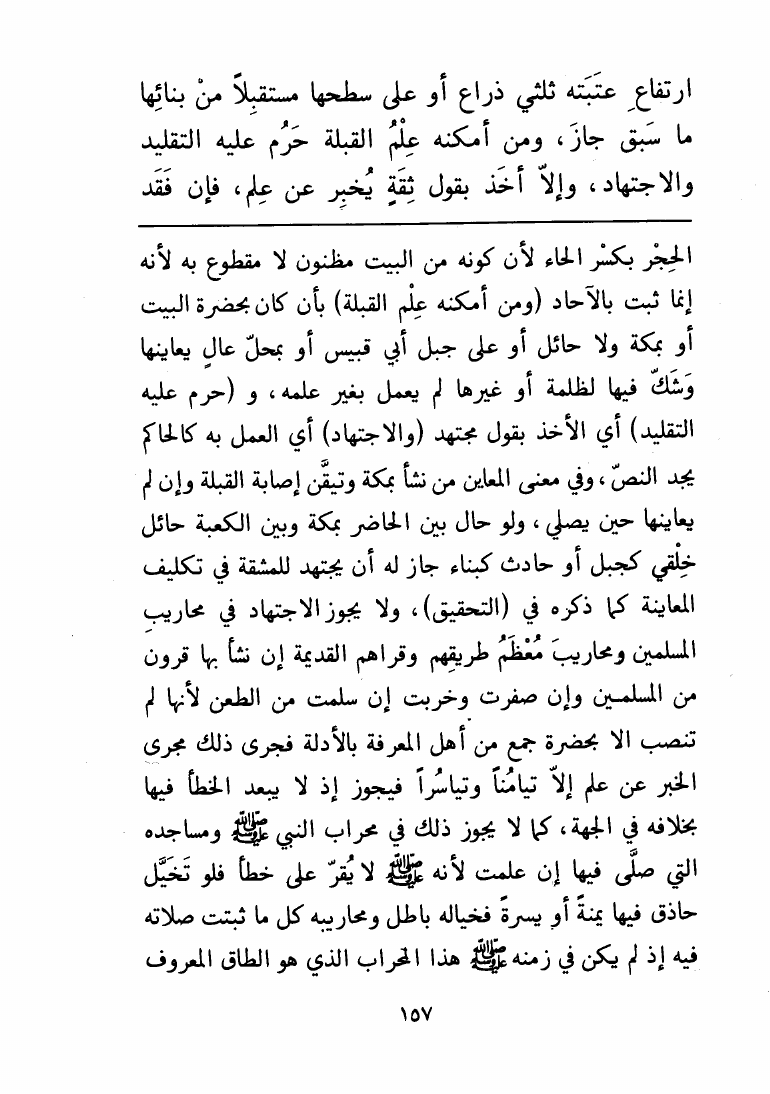 ارتفاعِ عتَبَته ثلثي ذراع أو على سطحها مستقبِلاً منْ بنائِها
ما سَبق جازَ، ومن أمكنه عِلْمُ القبلة حَرُم عليه التقليد
والاجتهاد، وإلاّ أخَذ بقول ثِقَةٍ يُخبِر عن عِلم، فإن فَقَد
الحِجْر بكسْر الحاء لأن كونه من البيت مظنون لا مقطوع به لأنه
إنما ثبت بالآحاد (ومن أمكنه عِلْم القبلة) بأن كان بحضرة البيت
أو بمكة ولا حائل أو على جبل أبي قبيس أو بمحلّ عالٍ يعاينها
وَشَكّ فيها لظلمة أو غيرها لم يعمل بغير علمه، و (حرم عليه
التقليد) أي الأخذ بقول مجتهد (والاجتهاد) أي العمل به كالحاكم
يجد النصّ، وفي معنى المعاين من نشأ بمكة وتيقَّن إصابة القبلة وإن لم
يعاينها حين يصلي، ولو حال بين الحاضر بمكة وبين الكعبة حائل
خِلْقي كجبل أو حادث كبناء جاز له أن يجتهد للمشقة في تكليف
المعاينة كما ذكره في (التحقيق)، ولا يجوز الاجتهاد في محاريبِ
المسلمين ومحاريبَ مُعْظَمُ طريقِهم وقراهم القديمة إن نشأ بها قرون
من المسلمين وإن صفرت وخربت إن سلمت من الطعن لأنها لم
تنصب الا بحضرة جمع من أهل المعرفة بالأدلة فجرى ذلك مجرى
الخبر عن علم إلاّ تيامُناً وتياسُراً فيجوز إذ لا يبعد الخطأ فيها
بخلافه في الجهة، كما لا يجوز ذلك في محراب النبي ﷺ ومساجده
التي صلَّى فيها إن علمت لأنه ﷺ لا يُقرّ على خطأ فلو تَخَيَّل
حاذق فيها يمنةً أو يسرةً فخياله باطل ومحاريبه كل ما ثبتت صلاته
فيه إذ لم يكن في زمنه ﷺ هذا المحراب الذي هو الطاق المعروف
١٥٧